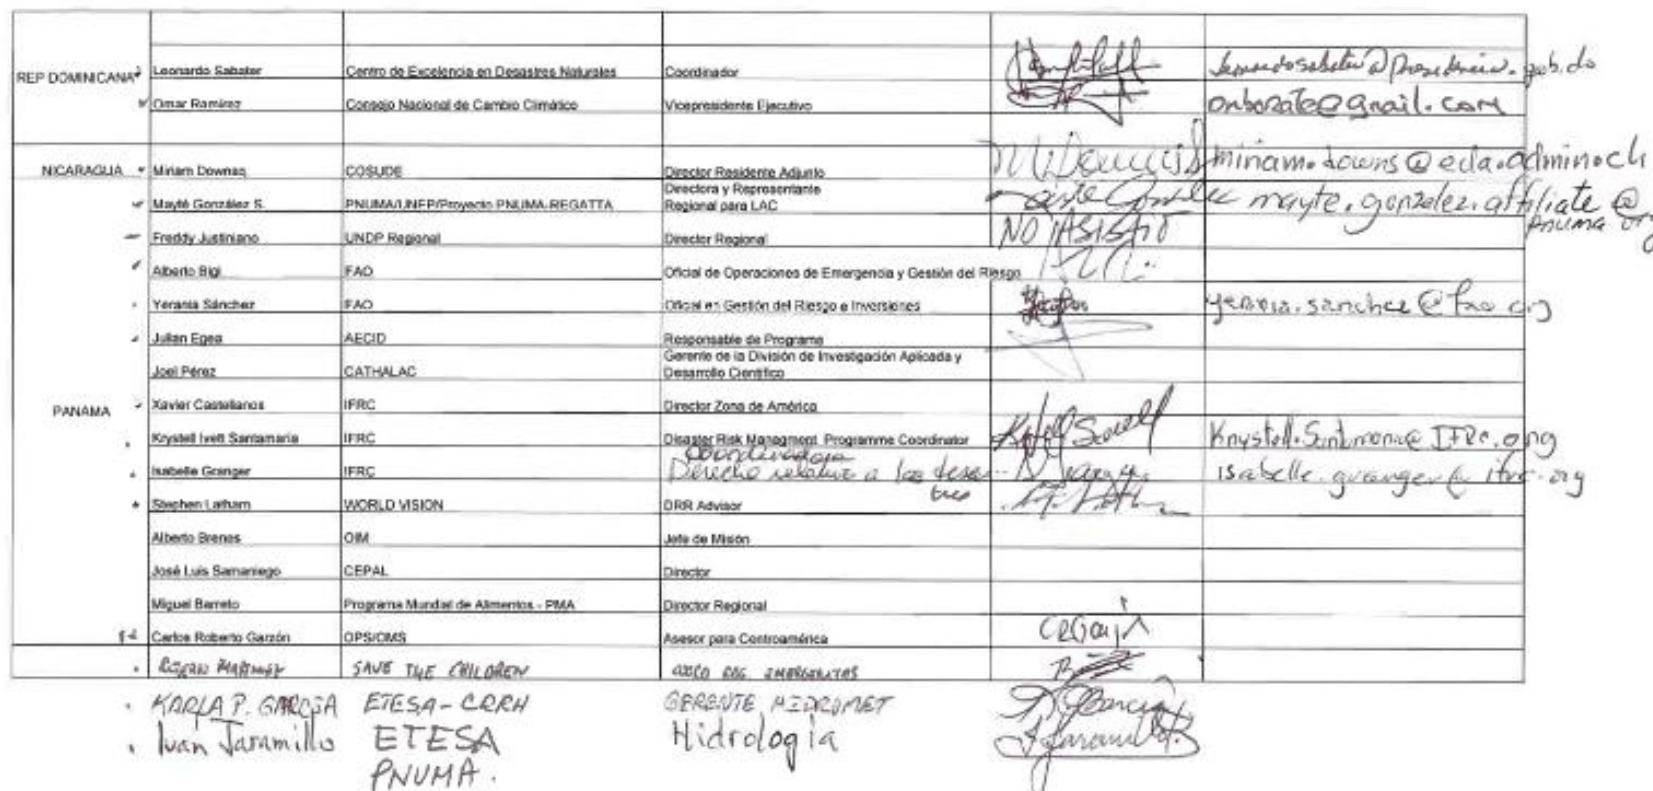 REP DOMINICANA Leonardo Sabater Centro de Excelencia en Desastres Naturales Coordinador
Omar Ramírez Consejo Nacional de Cambio Climático Vicepresidente Ejecutivo onborate@gmail.com
NICARAGUA Miriam Downas COSUDE Director Residente Adjunto miriam.downs@eda.admin.ch
Mayté González S. PNUMA/UNEP/Proyecto PNUMA-REGATTA Directora y Representante
Regional para LAC mayte.gonzalez.affiliate@
pnuma.org
Freddy Justiniano UNDP Regional Director Regional NO ASISTIÓ
Alberto Bigi FAO Oficial de Operaciones de Emergencia y Gestión del Riesgo
Yerania Sánchez FAO Oficial en Gestión del Riesgo e Inversiones yerania.sanchez@fao.org
Julian Egea AECID Responsable de Programa
Joel Pérez CATHALAC Gerente de la División de Investigación Aplicada y
Desarrollo Científico
PANAMA Xavier Castellanos IFRC Director Zona de América
Krystell Ivett Santamaría IFRC Disaster Risk Managment Programme Coordinator Krystell.Santamaria@IFRC.org
Isabelle Granger IFRC Coordinadora
Derecho relativo a los desas-
tres isabelle.granger@ifrc.org
Stephen Latham WORLD VISION DRR Advisor
Alberto Brenes OIM Jefe de Misión
José Luis Samaniego CEPAL Director
Miguel Barreto Programa Mundial de Alimentos - PMA Director Regional
Carlos Roberto Garzón OPS/OMS Asesor para Centroamérica CRGarzón
SAVE THE CHILDREN
KARLA P. GARCIA ETESA-CRRH GERENTE HIDROMET
Ivan Jaramillo ETESA Hidrología
PNUMA.